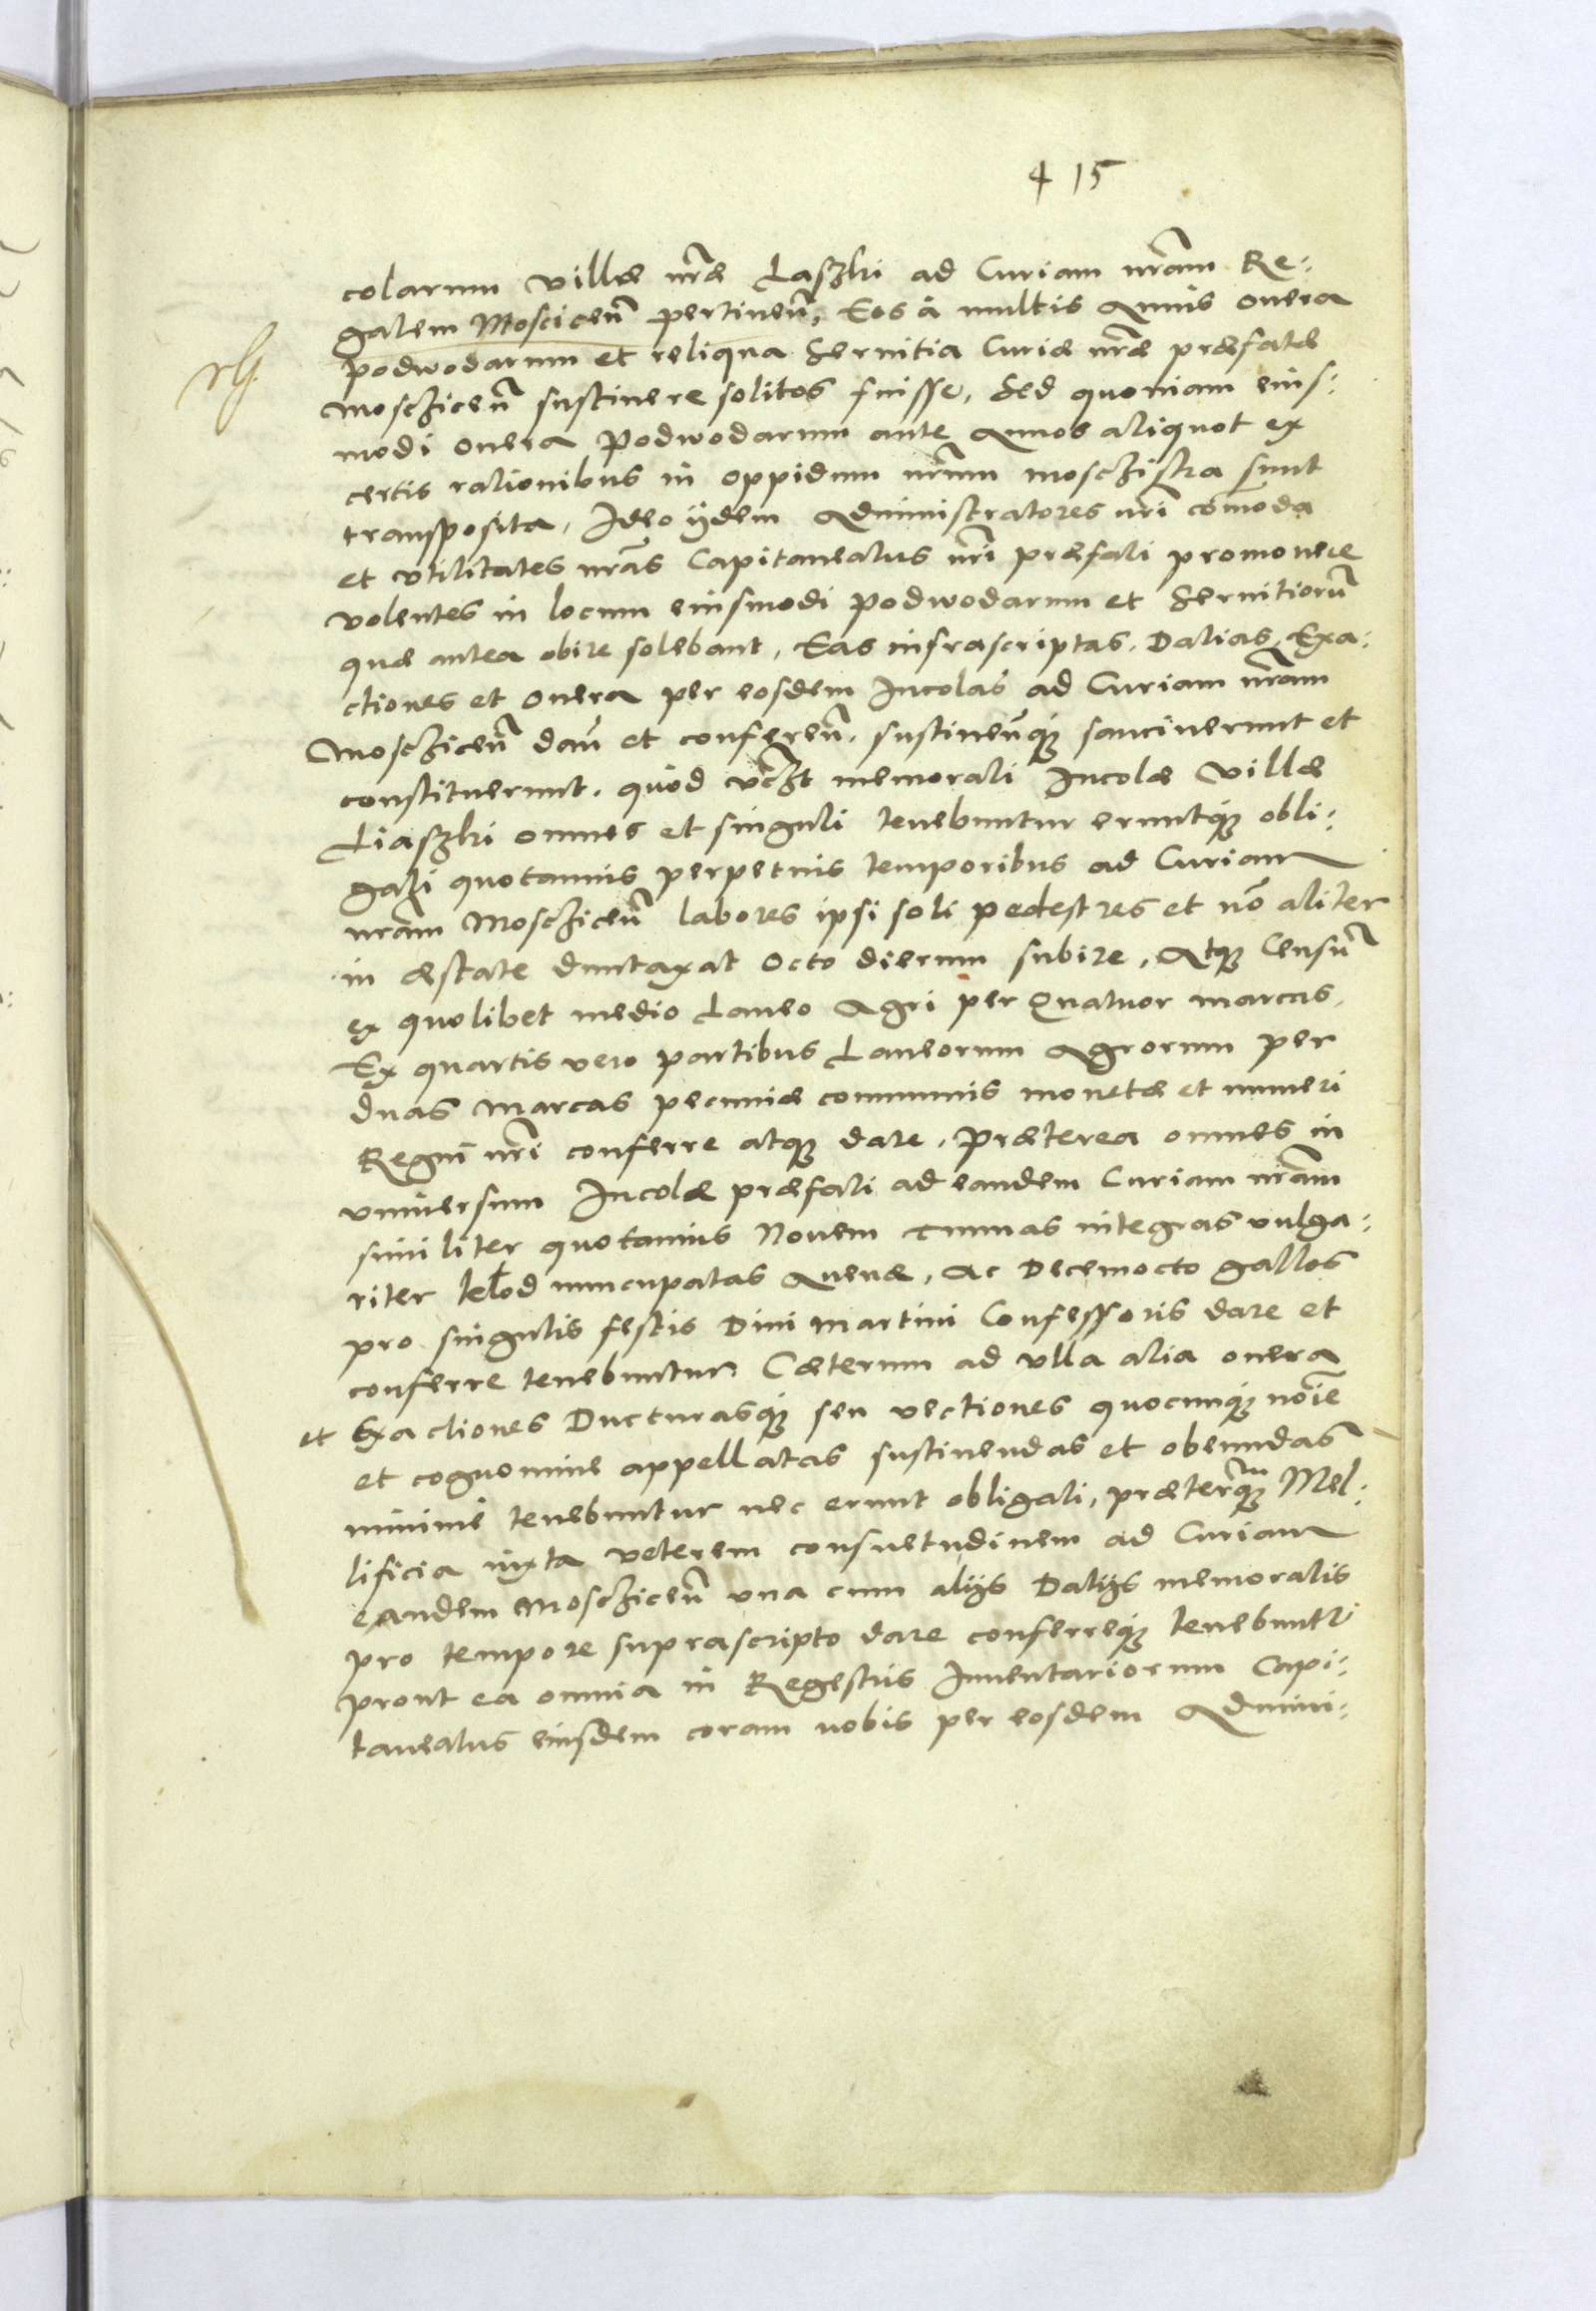 4 15
colarum Villæ nr̃æ Laszki ad Curiam nr̃am Re:
galem Moscicen̄ pertinen̄, Eos à multis Annis onera
podwodarum et reliqua Seruitia Curiæ nr̃æ præfatæ
Mosczicen̄ sustinere solitos fuisse, Sed quoniam eius:
modi onera Podwodarum ante Annos aliquot ex
certis rationibus in Oppidum nr̃um Moscziska sunt
transposita, Ideo ijdem Administratores nr̃i com̄oda
et vtilitates nr̃as Capitaneatus nr̃i præfati promouere
volentes in locum eiusmodi podwodarum et Seruitiorū
quæ antea obire solebant, Eas infrascriptas, Datias, Exa:
ctiones et onera per eosdem Incolas ad Curiam nr̃am
Mosczicen̄ dan̄ et conferen̄, sustinen̄qꜗ sanciuerunt et
constituerunt. quòd vꝫt memorati Incolæ Villæ
Liaszki omnes et singuli tenebuntur eruntqꜗ obli:
gati quotannis perpetuis temporibus ad Curiam
nr̃am Mosczicen̄ labores ipsi soli pedestres et nō aliter
in æstate duntaxat octo dierum subire, Atqꜗ Censū
ex quolibet medio Laneo Agri per Quatuor marcas,
Ex quartis vero partibus Laneorum Agrorum per
duas Marcas pecuniæ communis monetæ et numeri
Regni nr̃i conferre atqꜗ dare. Præterea omnes in
vniuersum Incolæ præfati ad eandem Curiam nr̃am
similiter quotannis Nouem Tunnas integras vulga:
riter nuncupatas Auenæ, Ac Decemocto gallos
pro singulis festis Diui Martini Confessoris dare et
conferre tenebuntur Cæterum ad vlla alia onera
et Exactiones Ducturasqꜗ seu vectiones quocunqꜗ noīe
et cognomine appellatas sustinendas et obeundas
minime tenebuntur nec erunt obligati, præterqꜗm Mel:
lificia iuxta veterem consuetudinem ad Curiam
eandem Mosczicen̄ vna cum alijs Datijs memoratis
pro tempore suprascripto dare conferreqꜗ tenebunt̃
prout ea omnia in Regestris Inuentariorum Capi:
taneatus eiusdem coram nobis per eosdem Admini: